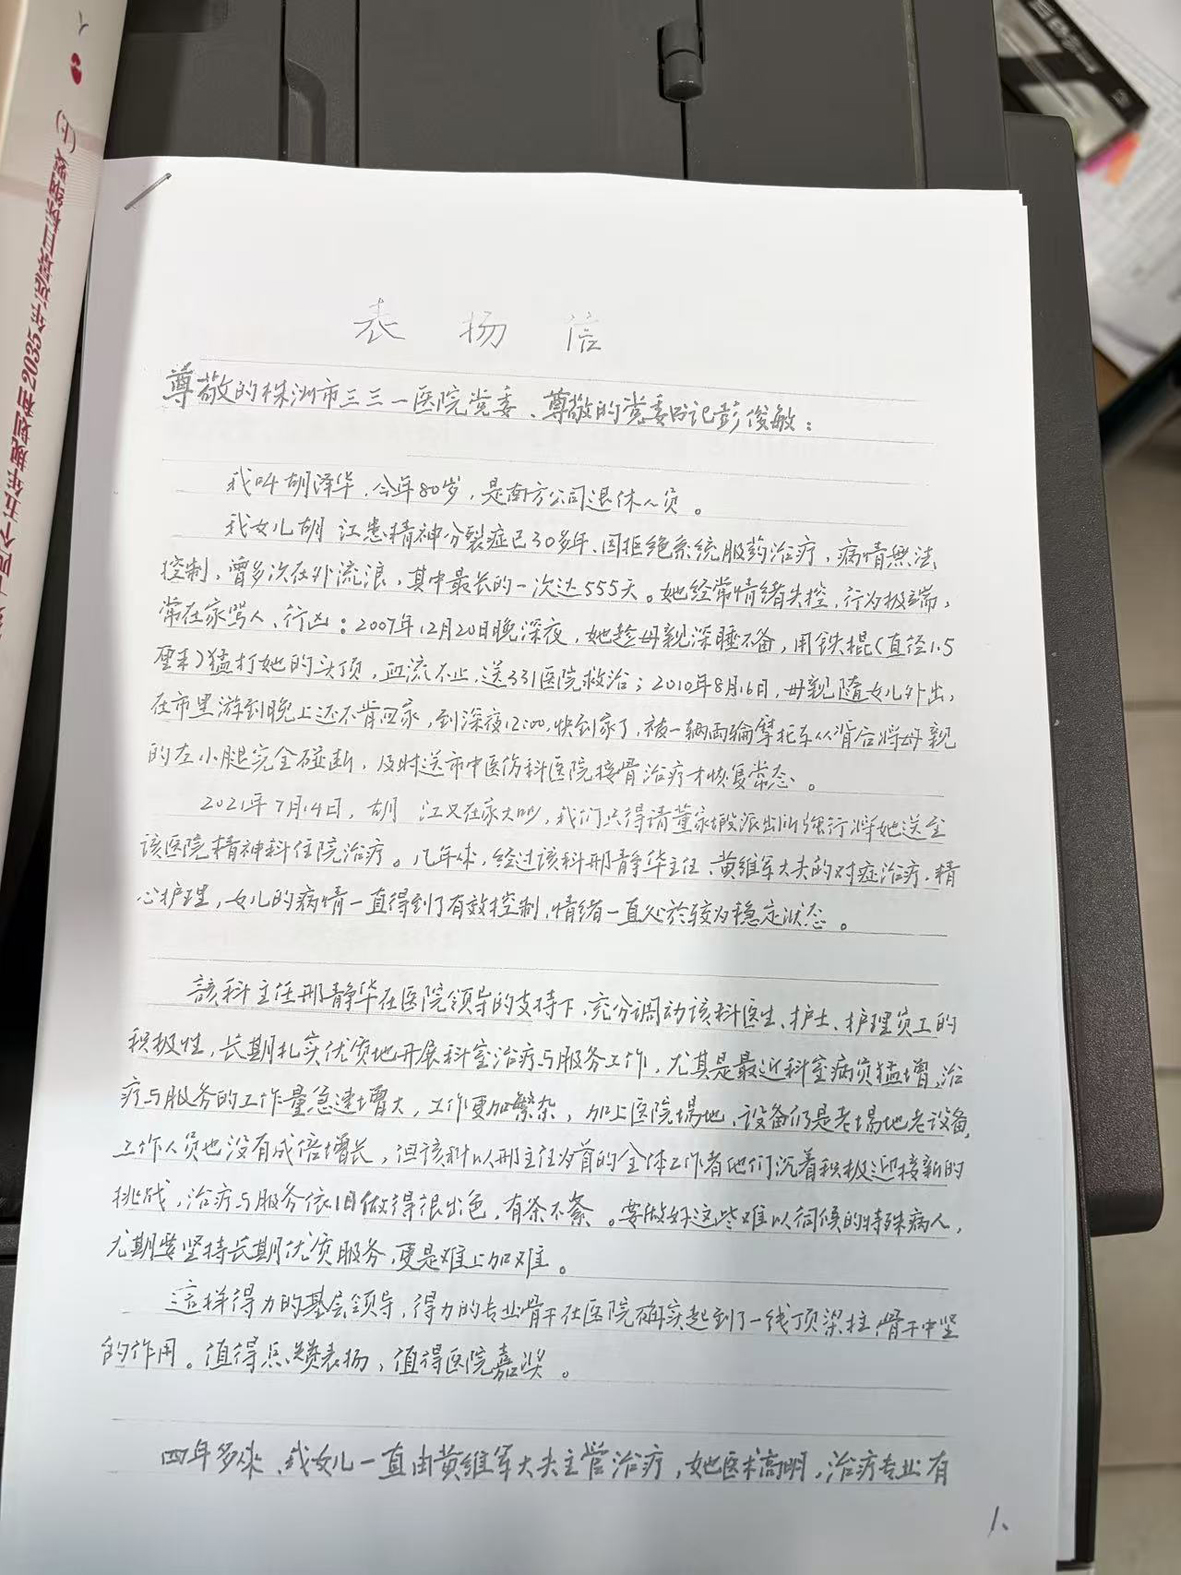 表扬信
尊敬的株洲市三三一医院党委、尊敬的党委书记彭俊敏：
我叫胡泽华，今年80岁，是南方公司退休人员。
我女儿胡 江患精神分裂症已30多年、因拒绝系统服药治疗，病情無法
控制，曾多次在外流浪，其中最长的一次达555天。她经常情绪失控，行为极端，
常在家骂人、行凶：2007年12月20日晚深夜，她趁母亲深睡不备，用铁棍（直径1.5
厘米）猛打她的头顶，血流不止，送331医院救治；2010年8月16日，母親随女儿外出，
在市里游到晚上还不肯回家，到深夜12:00，快到家了，被一辆两轮摩托车从背后将母親
的左小腿完全碰断，及时送市中医伤科医院接骨治疗才恢复常态。
2021年7月14日，胡 江又在家大吵，我们只得请董家塅派出所强行将她送至
该医院精神科住院治疗。几年来，经过该科邢静华主任、黄维军大夫的对症治疗、精
心护理，女儿的病情一直得到了有效控制，情绪一直处於较为稳定状态。
該科主任邢静华在医院领导的支持下，充分调动该科医生、护士、护理员工的
积极性，长期扎实优质地开展科室治疗与服务工作，尤其是最近科室病员猛增，治
疗与服务的工作量急速增大，工作更加繁杂，加上医院場地、设备仍是老場地老设备，
工作人员也没有成倍增长，但该科以邢主任为首的全体工作者他们沉着积极迎接新的
挑战，治疗与服务依旧做得很出色，有条不紊。要做好这些难以伺候的特殊病人，
尤期要坚持长期优质服务，更是难上加难。
这样得力的基层领导，得力的专业骨干在医院确实起到了一线顶梁柱，骨干中坚
的作用。值得点赞表扬，值得医院嘉奖。
四年多来、我女儿一直由黄维军大夫主管治疗，她医术高明，治疗专业有
1、
四个五年规划和2035年远景目标纲要